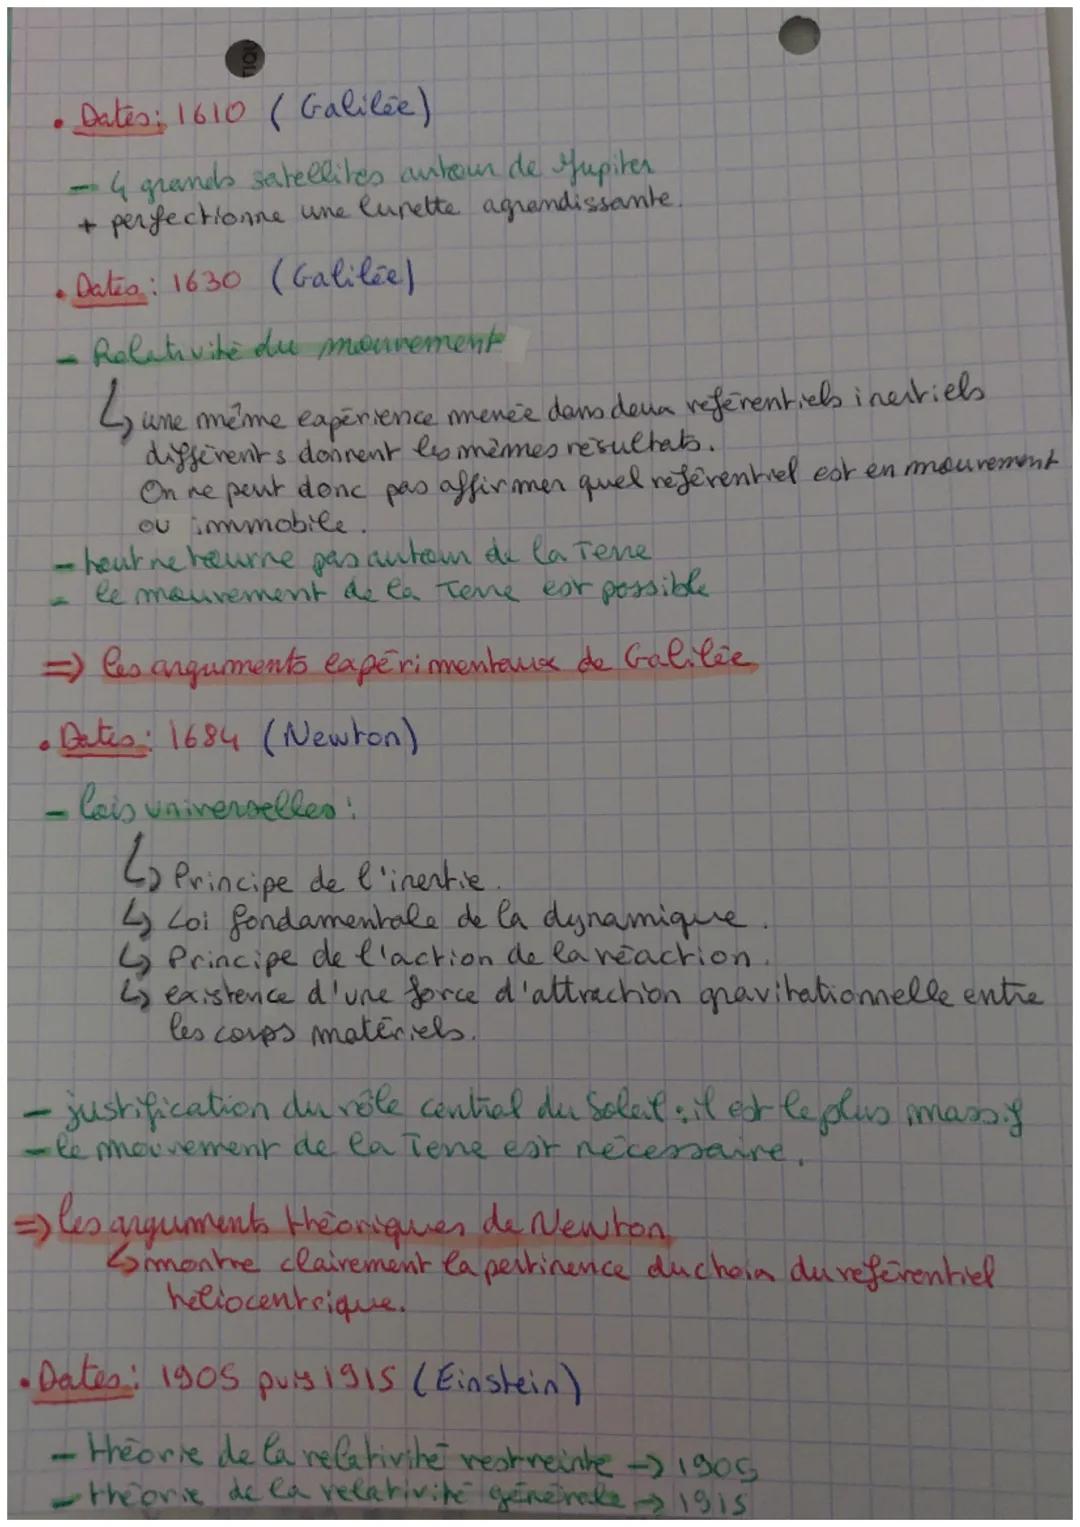 TIQU
• Dates: 1610 (Galilée)
- 4 grands satellites autour de Jupiter
+ perfectionne une lunette agrandissante.
• Dates: 1630 (Galilée)
- Relativité du mouvement
↳ une même expérience menée dans deux référentiels inertiels
différents donnent les mêmes résultats.
On ne peut donc pas affirmer quel référentiel est en mouvement
ou immobile.
- tout ne tourne pas autour de la Terre
- le mouvement de la Terre est possible
=> les arguments expérimentaux de Galilée
• Dates: 1684 (Newton)
- lois universelles:
↳ Principe de l'inertie.
↳ Loi fondamentale de la dynamique.
↳ Principe de l'action de la réaction.
↳ existence d'une force d'attraction gravitationnelle entre
les corps matériels.
- justification du rôle central du Soleil: il est le plus massif
- le mouvement de la Terre est nécessaire.
=> les arguments théoriques de Newton
↳ montre clairement la pertinence du choix du référentiel
héliocentrique.
• Dates: 1905 puis 1915 (Einstein)
- théorie de la relativité restreinte → 1905
- théorie de la relativité générale → 1915